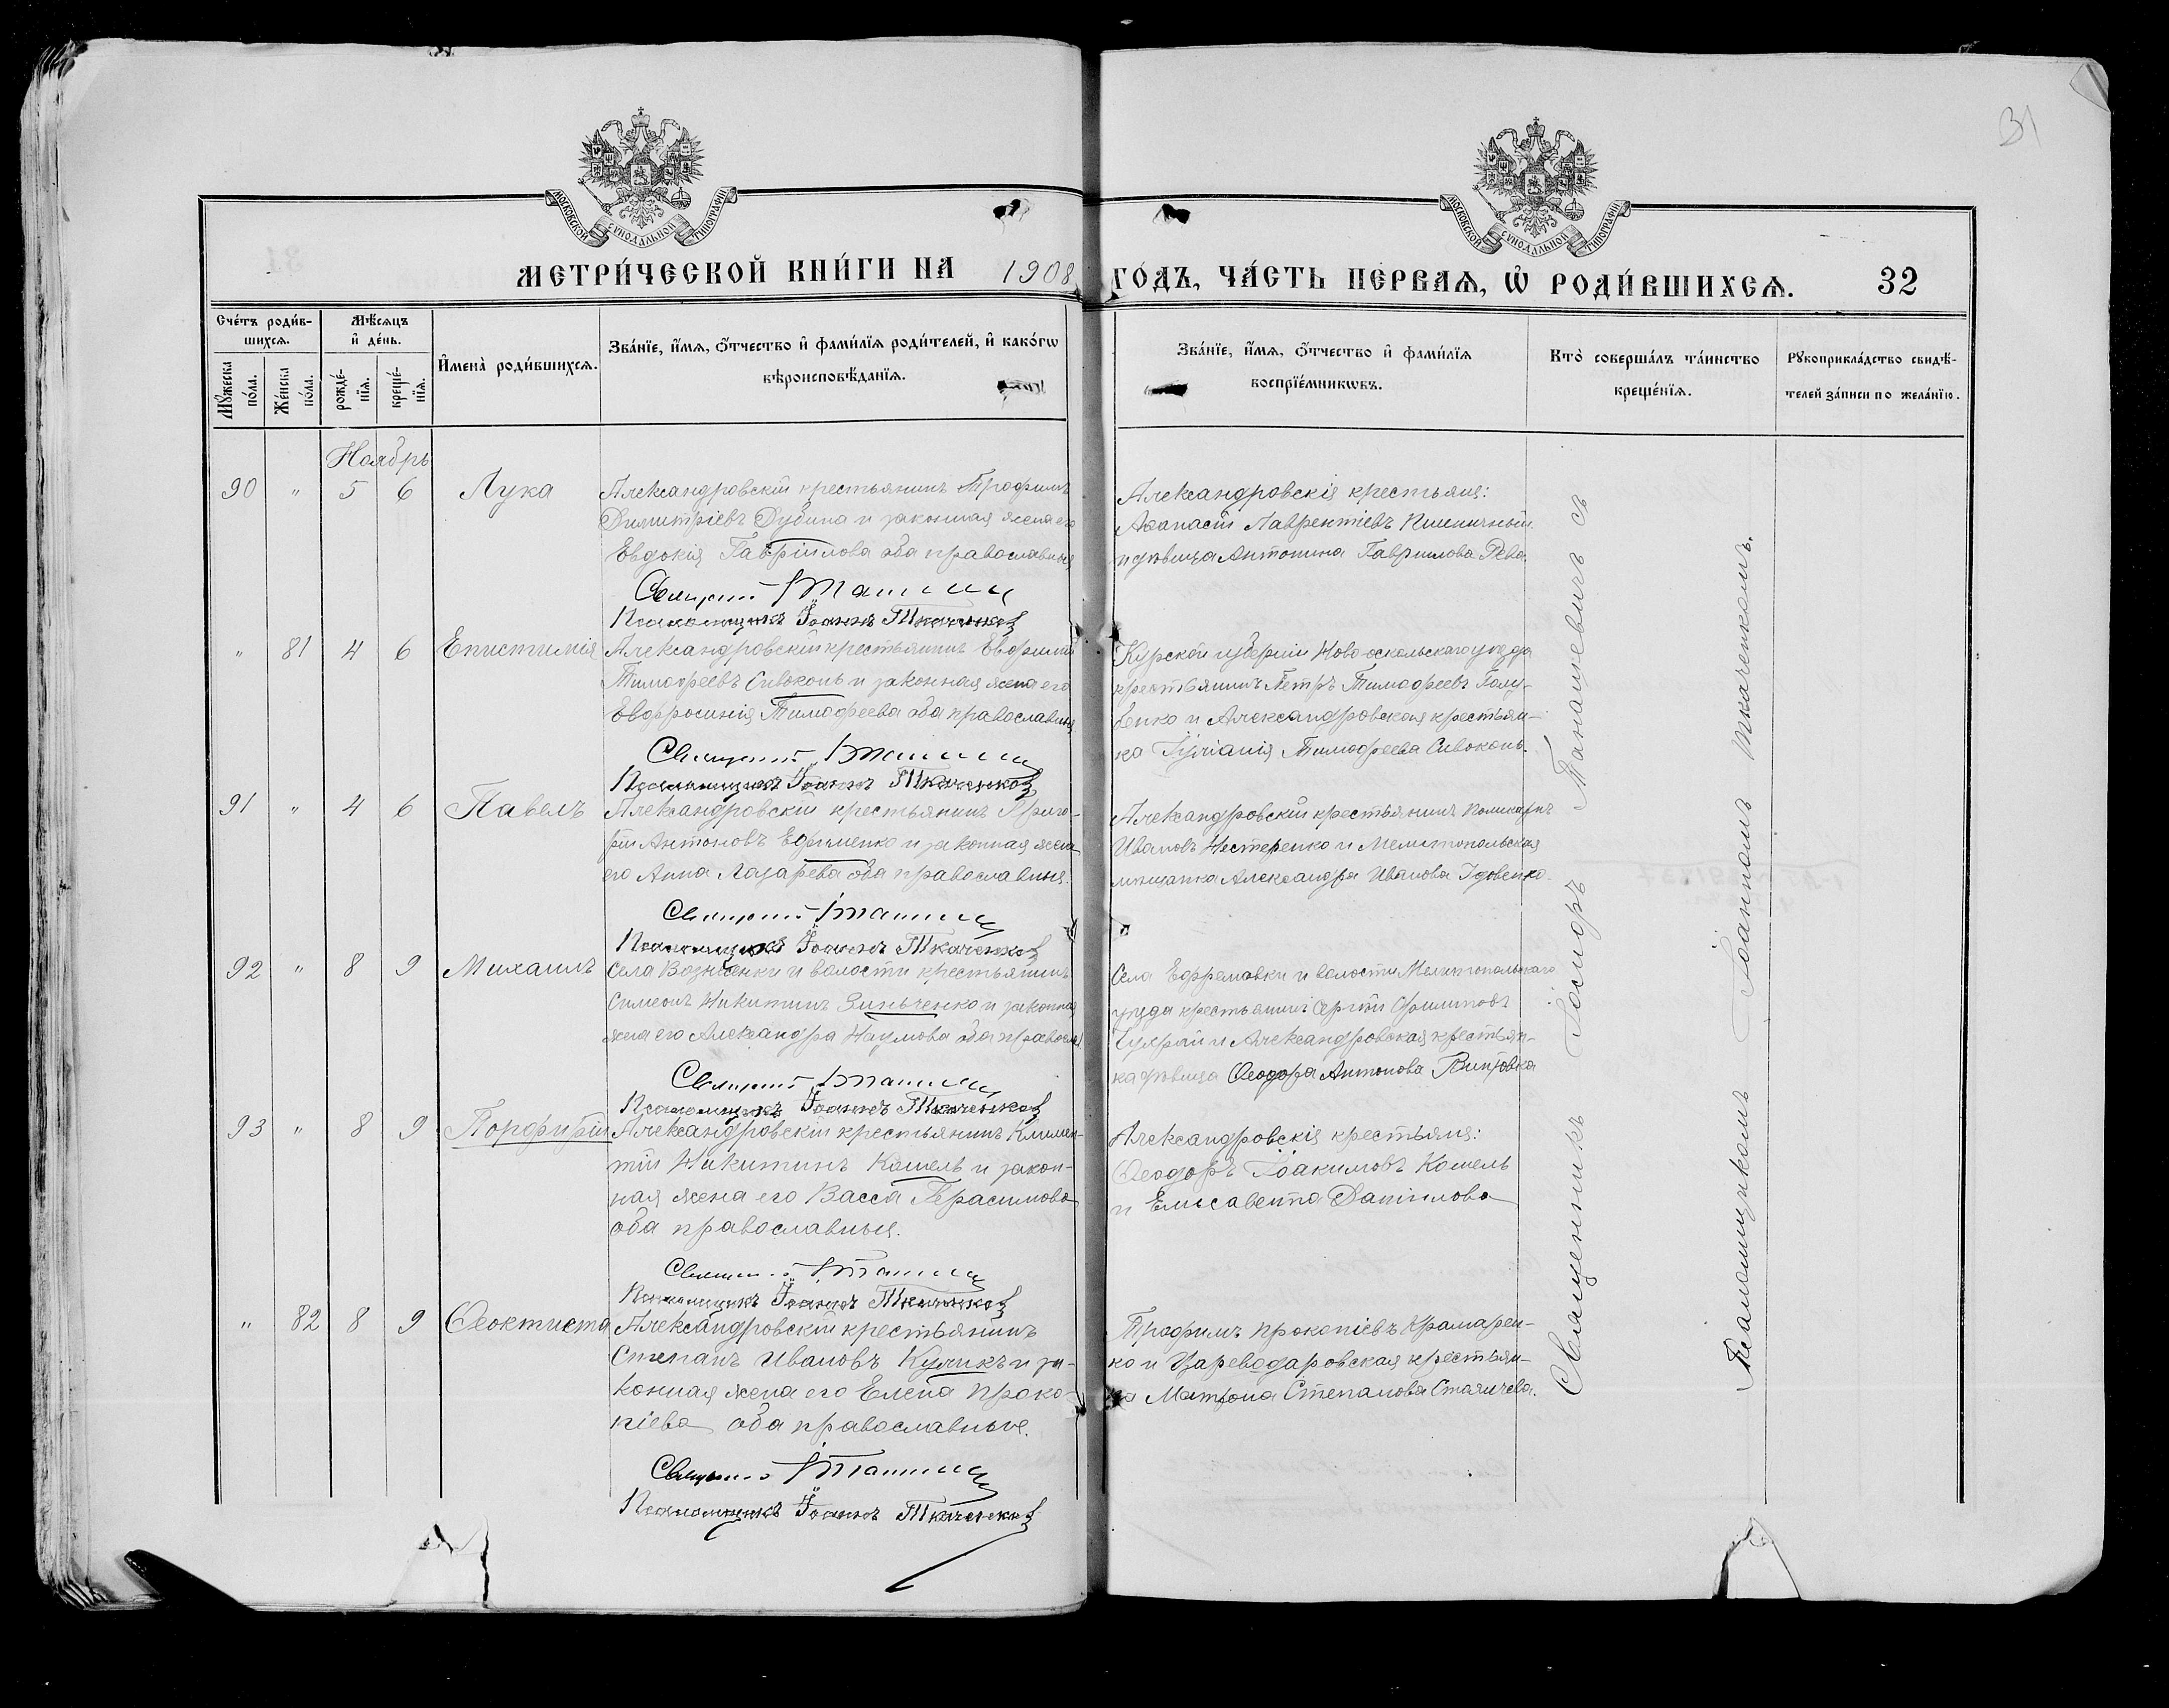 31
МОСКОВСКОЙ СѴНОДАЛЬНОЙ ТИПОГРАФІИ
МОСКОВСКОЙ СѴНОДАЛЬНОЙ ТИПОГРАФІИ
МЕТРИ́ЧЕСКОЙ КНИ́ГИ НА 1908 ГО́ДЪ, ЧА́СТЬ ПЕ́РВАѦ, Ѡ҆ РОДИ́ВШИХСѦ. 32
Сче́тъ роди́вшихсѧ.
Мѹ́жеска по́ла.
Же́нска по́ла.
Мѣ́сѧцъ и҆ де́нь.
рожде́нїѧ.
креще́нїѧ.
И҆мена̀ роди́вшихсѧ.
Зва́нїе, и҆́мѧ, ѻ҆́тчество и҆ фами́лїѧ роди́телей, и҆ како́гѡ
вѣроисповѣ́данїѧ.
Зва́нїе, и҆́мѧ, ѻ҆́тчество и҆ фами́лїѧ
воспрїе́мникѡвъ.
Кто̀ соверша́лъ та́инство
креще́нїѧ.
Рѹкоприкла́дство свидѣ́-
телей за́писи по жела́нїю.
Ноябрь
90 " 5 6 Лука
Александровскій крестьянинъ Трофимъ
Димитріевъ Дубина и законная жена его
Евдокія Гавріилова оба православныя
Псаломщикъ Іоаннъ Ткаченко
Александровскія крестьяне:
Аѳанасій Лаврентіевъ Пшеничный
и дѣвица Антонина Гаврилова Рева.
" 81 4 6 Епистимія
Александровскій крестьянинъ Евфимій
Тимофеевъ Сивоконь и законная жена его
Евфросинія Тимофеева оба православныя
Псаломщикъ Іоаннъ Ткаченко
Курской губерніи Ново-оскольскаго уезда
крестьянинъ Петръ Тимофеевъ Голу-
бенко и Александровская крестьян-
ка Іуліанія Тимофеева Сивоконь.
91 " 4 6 Павелъ
Александровскій крестьянинъ Григо-
рій Антоновъ Ефименко и законная жена
его Анна Лазарева оба православныя.
Псаломщикъ Іоаннъ Ткаченко
Александровскій крестьянинъ Поликарпъ
Ивановъ Нестеренко и Мелитопольская
мѣщанка Александра Иванова
92 " 8 9 Михаилъ
Села Вознесенки и волости крестьянинъ
Симеонъ Никитинъ Зинченко и законная
жена его Александра Наумова оба правосл.
Псаломщикъ Іоаннъ Ткаченко
Села Ефремовки и волости Мелитопольскаго
уезда крестьянинъ Сергій Филиповъ
и Александровская крестьян-
ка дѣвица Ѳеодора Антонова
93 " 8 9 Порфирій
Александровскій крестьянинъ Климен-
тій Никитинъ Кошель и закон-
ная жена его Васса Герасимова
оба православныя.
Псаломщикъ Іоаннъ Ткаченко
Александровскія крестьяне:
Ѳеодоръ Іоакимовъ Кошель
и Елисавета Даніилова
" 82 8 9 Ѳеоктиста
Александровскій крестьянинъ
Степанъ Ивановъ Куликъ и за-
конная жена его Елена Проко-
піева оба православные.
Псаломщикъ Іоаннъ Ткаченко
Трофимъ Прокопіевъ Крамарен-
ко и Цареводаровская крестьян-
ка Матрона Степанова
Священникъ Іосифъ Танашевичъ съ
Псаломщикомъ Іоанномъ Ткаченкомъ.